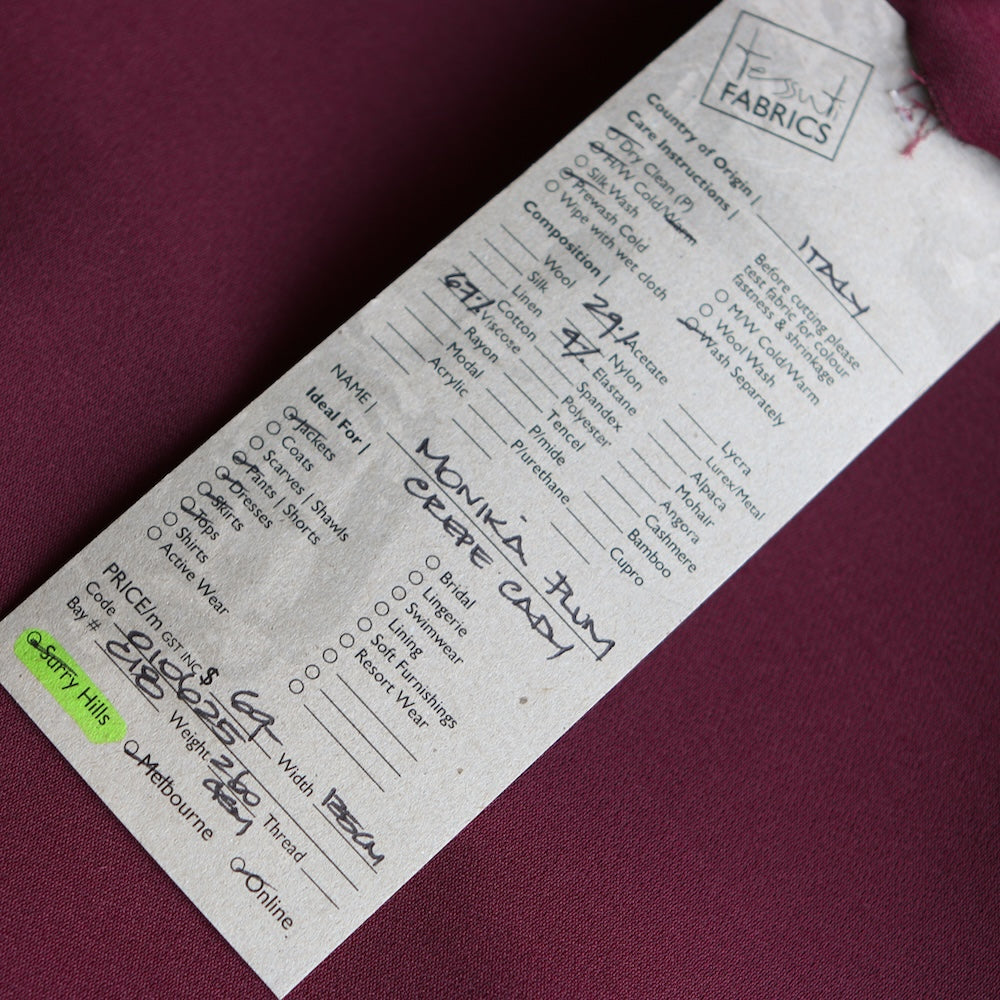 Tessuti
FABRICS
Country of Origin | ITALY
Care Instructions |
Dry Clean (P)
H/W Cold/Warm
Silk Wash
Prewash Cold
Wipe with wet cloth
Before cutting please
test fabric for colour
fastness & shrinkage
M/W Cold/Warm
Wool Wash
Wash Separately
Composition |
Wool
Silk
Linen
Cotton
67% Viscose
Rayon
Modal
Acrylic
29% Acetate
Nylon
4% Elastane
Spandex
Polyester
Tencel
P/mide
P/urethane
Lycra
Lurex/Metal
Alpaca
Mohair
Angora
Cashmere
Bamboo
Cupro
NAME | MONIKA PLUM
CREPE CADY
Ideal For |
Jackets
Coats
Scarves | Shawls
Pants | Shorts
Dresses
Skirts
Tops
Shirts
Active Wear
Bridal
Lingerie
Swimwear
Lining
Soft Furnishings
Resort Wear
PRICE/m GST INC $ 69 Width 135CM
Code 010625 Weight 260 GSM Thread
Bay # 818
Surry Hills
Melbourne
Online